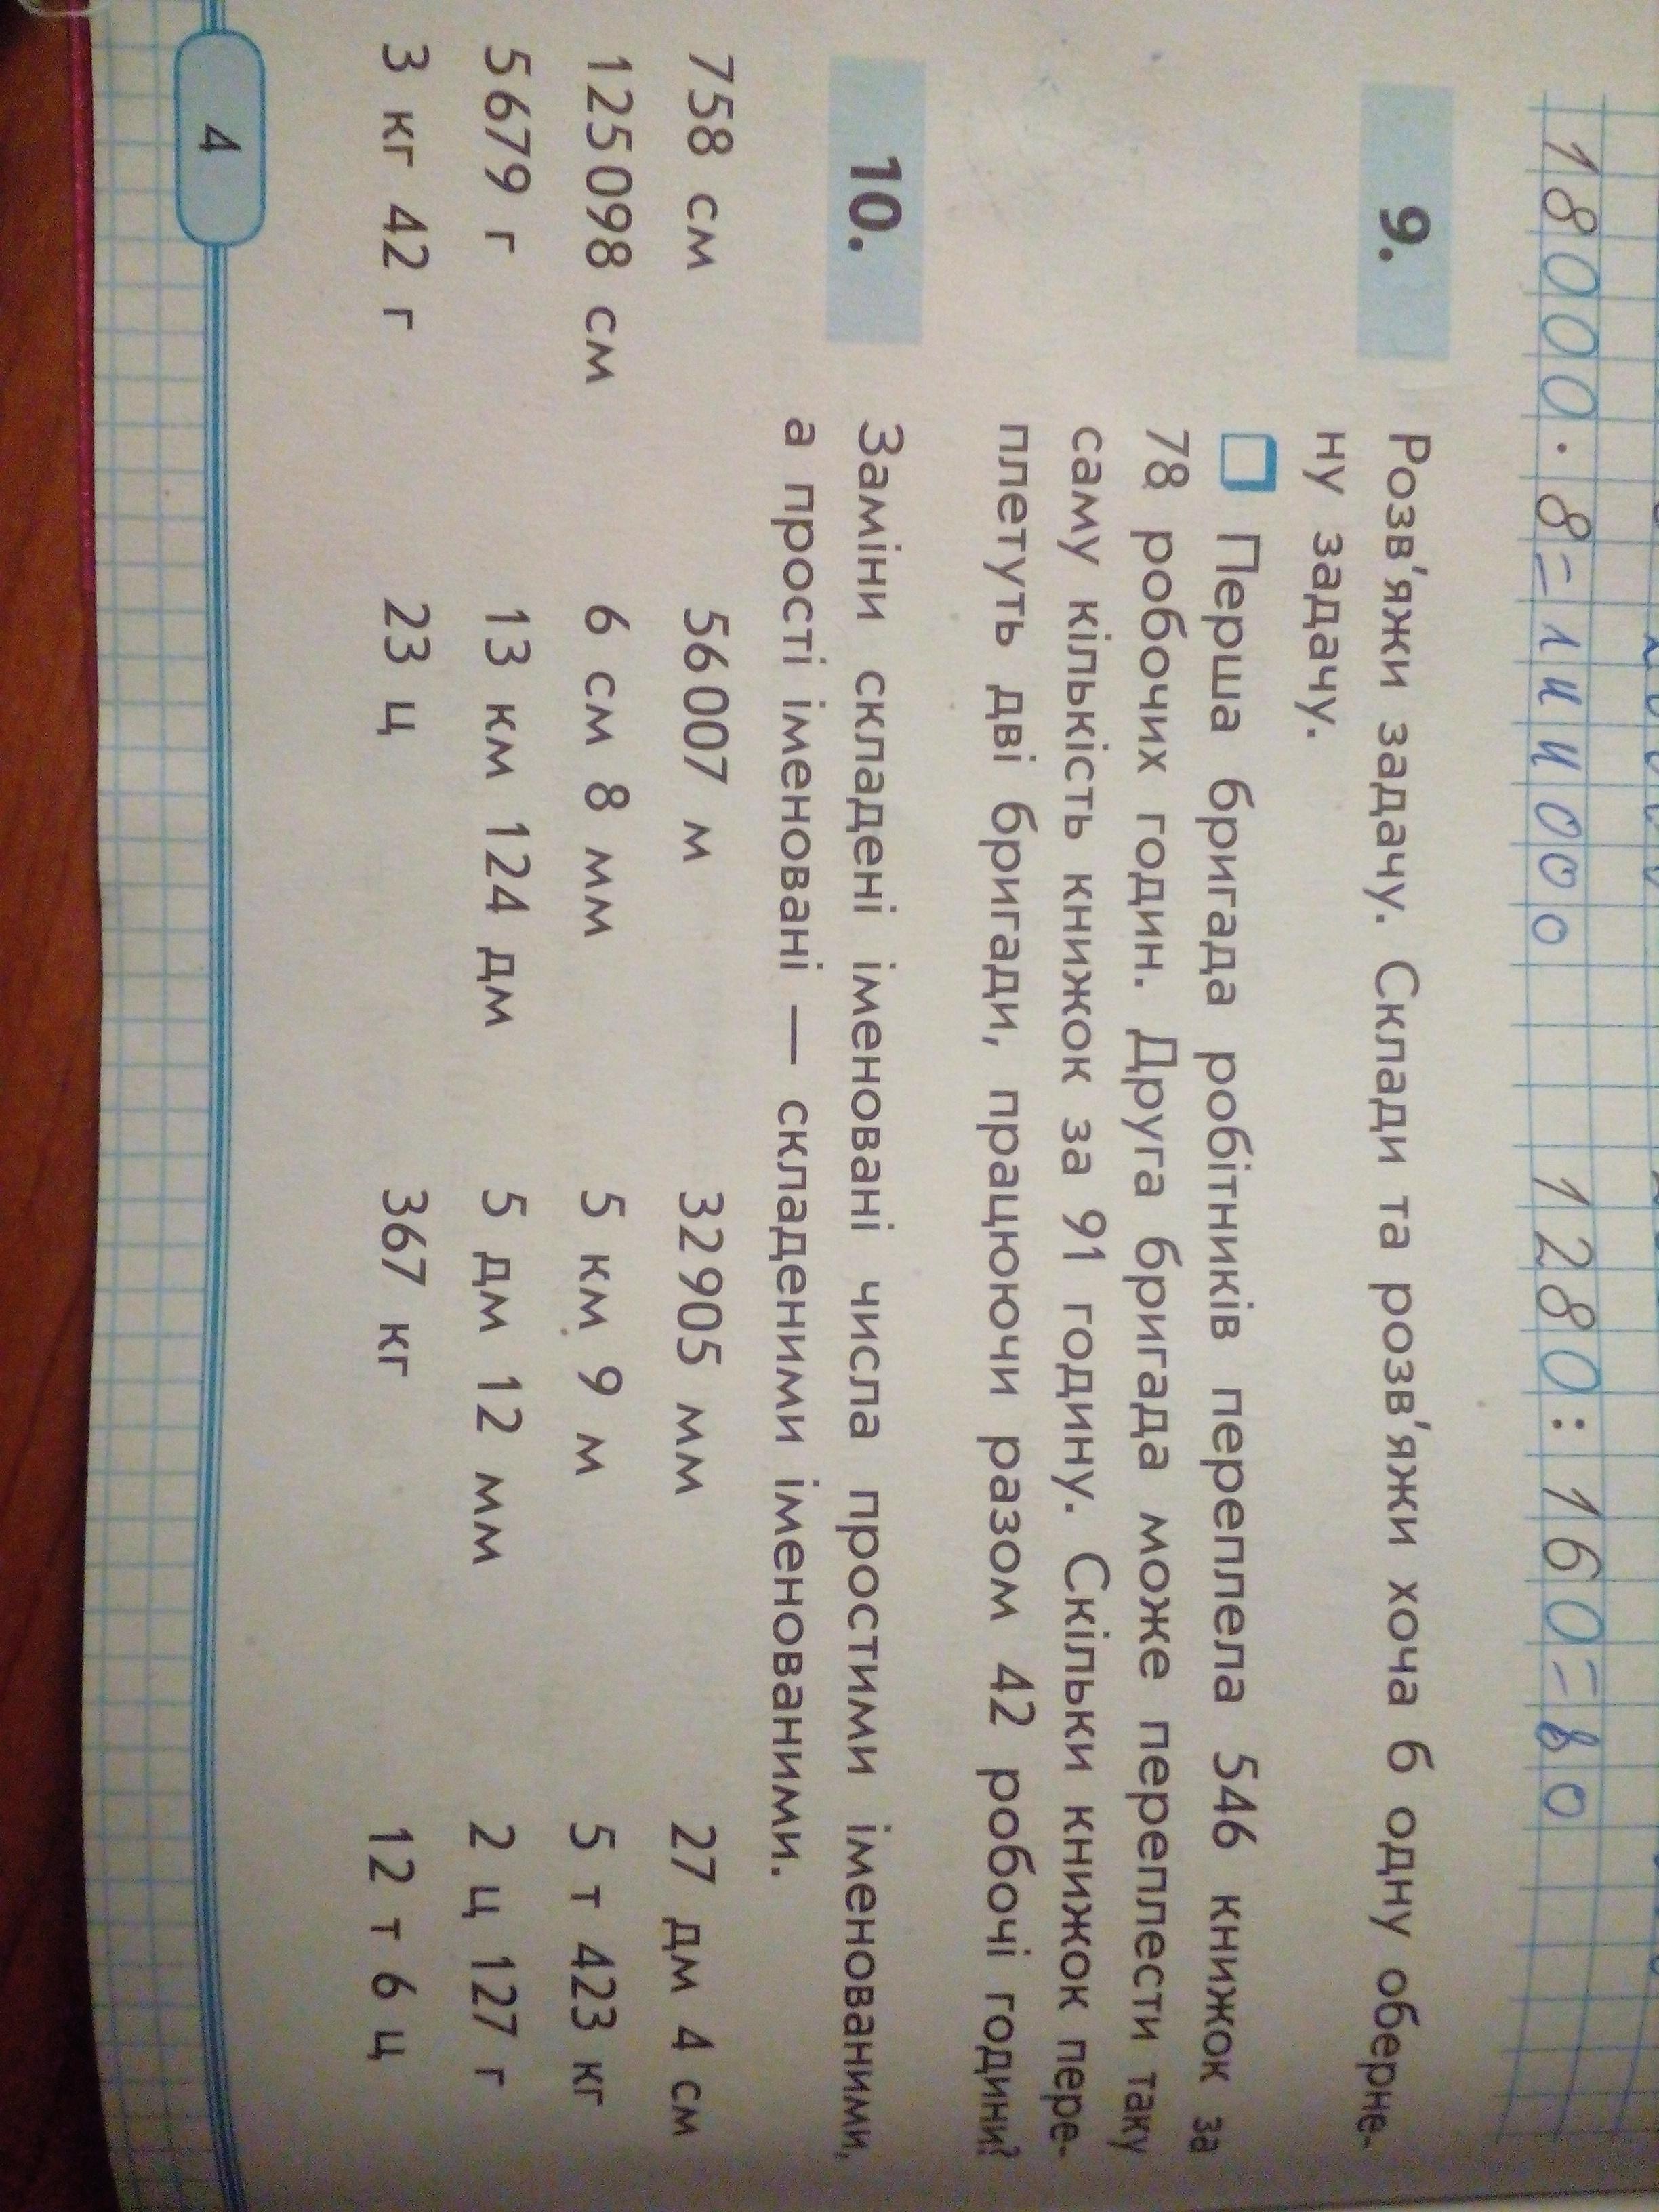 18000·8=144000 1280:160=80
9. Розв'яжи задачу. Склади та розв'яжи хоча б одну оберне-
ну задачу.
Перша бригада робітників переплела 546 книжок за
78 робочих годин. Друга бригада може переплести таку
саму кількість книжок за 91 годину. Скільки книжок пере-
плетуть дві бригади, працюючи разом 42 робочі години?
10. Заміни складені іменовані числа простими іменованими,
а прості іменовані — складеними іменованими.
758 см 56007 м 32905 мм 27 дм 4 см
125098 см 6 см 8 мм 5 км 9 м 5 т 423 кг
5679 г 13 км 124 дм 5 дм 12 мм 2 ц 127 г
3 кг 42 г 23 ц 367 кг 12 т 6 ц
4